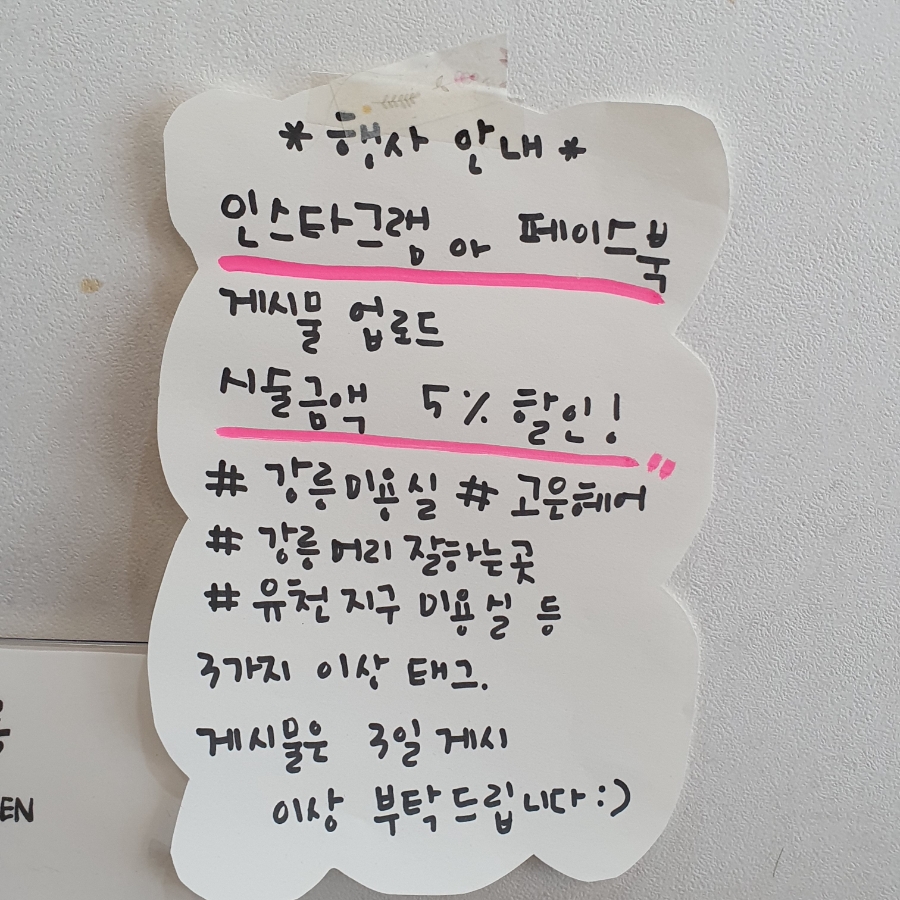 * 행사 안내 *
인스타그램 아 페이스북
게시물 업로드
시술금액 5% 할인!
# 강릉미용실 # 고운헤어
# 강릉 머리 잘하는곳
# 유천지구 미용실 등
3가지 이상 태그.
게시물은 3일 게시
이상 부탁드립니다:)
EN